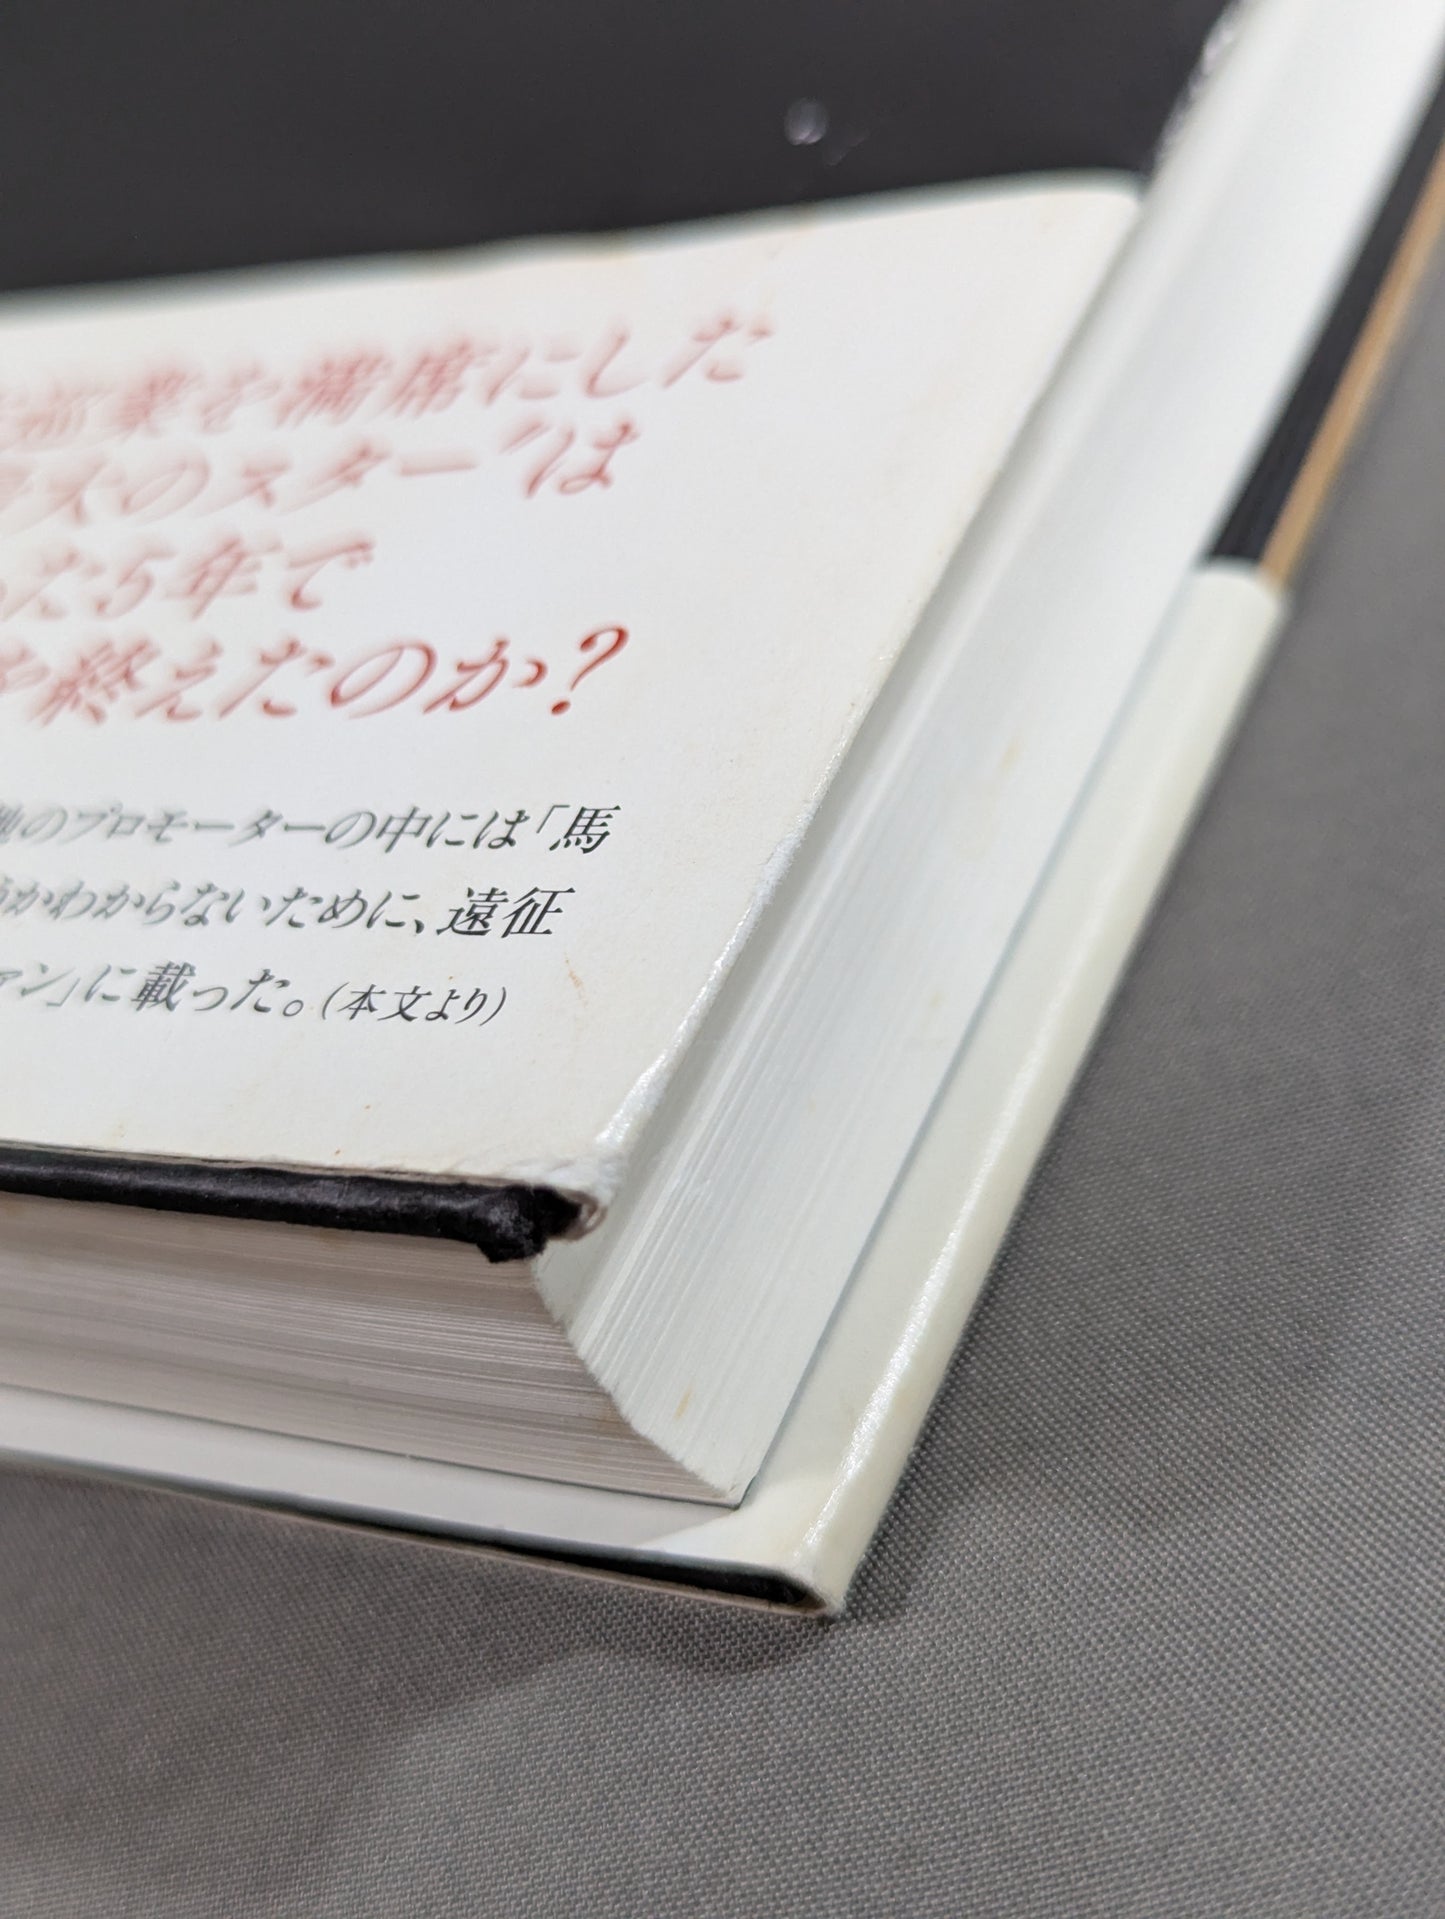 巡業を満席にした
大のスター”は
た5年で
終えたのか?
地のプロモーターの中には「馬
かわからないために、遠征
ァン」に載った。(本文より)